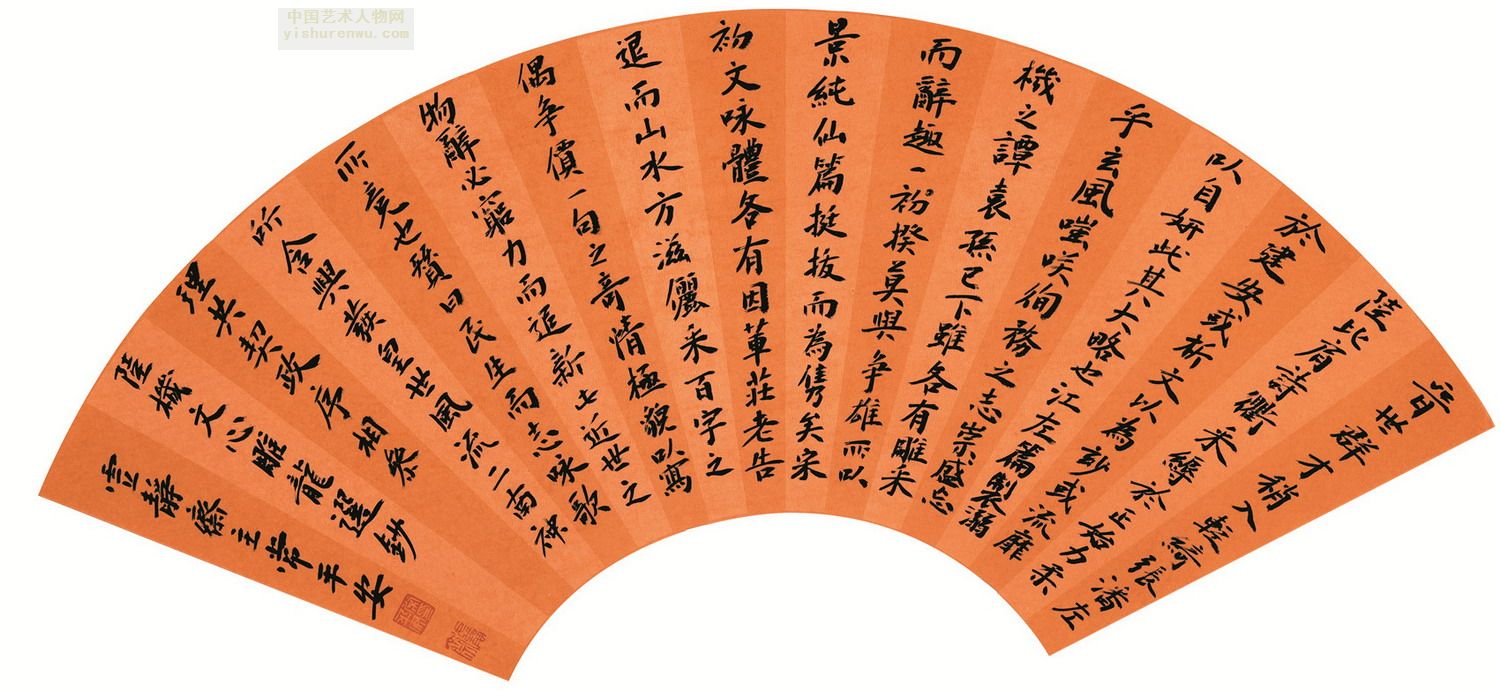 中国艺术人物网
yishurenwu.com
晉世群才稍入輕綺張潘左
陸比肩詩衢采縟於正始力柔
於建安或析文以為妙或流靡
以自妍此其大略也江左篇製溺
乎玄風嗤咲徇務之志崇盛忘
機之譚袁孫已下雖各有雕采
而辭趣一初揆莫與爭雄所以
景純仙篇挺拔而為雋矣宋
初文咏體各有因革莊老告
退而山水方滋儷采百字之
偶爭價一句之奇情極貌以寫
物辭必窮力而追新此近世之
所竞也贊曰民生而志咏歌
所含興發皇世風流二南神
理共契政序相參
陸機文心雕龍選鈔
靜齋主常年安